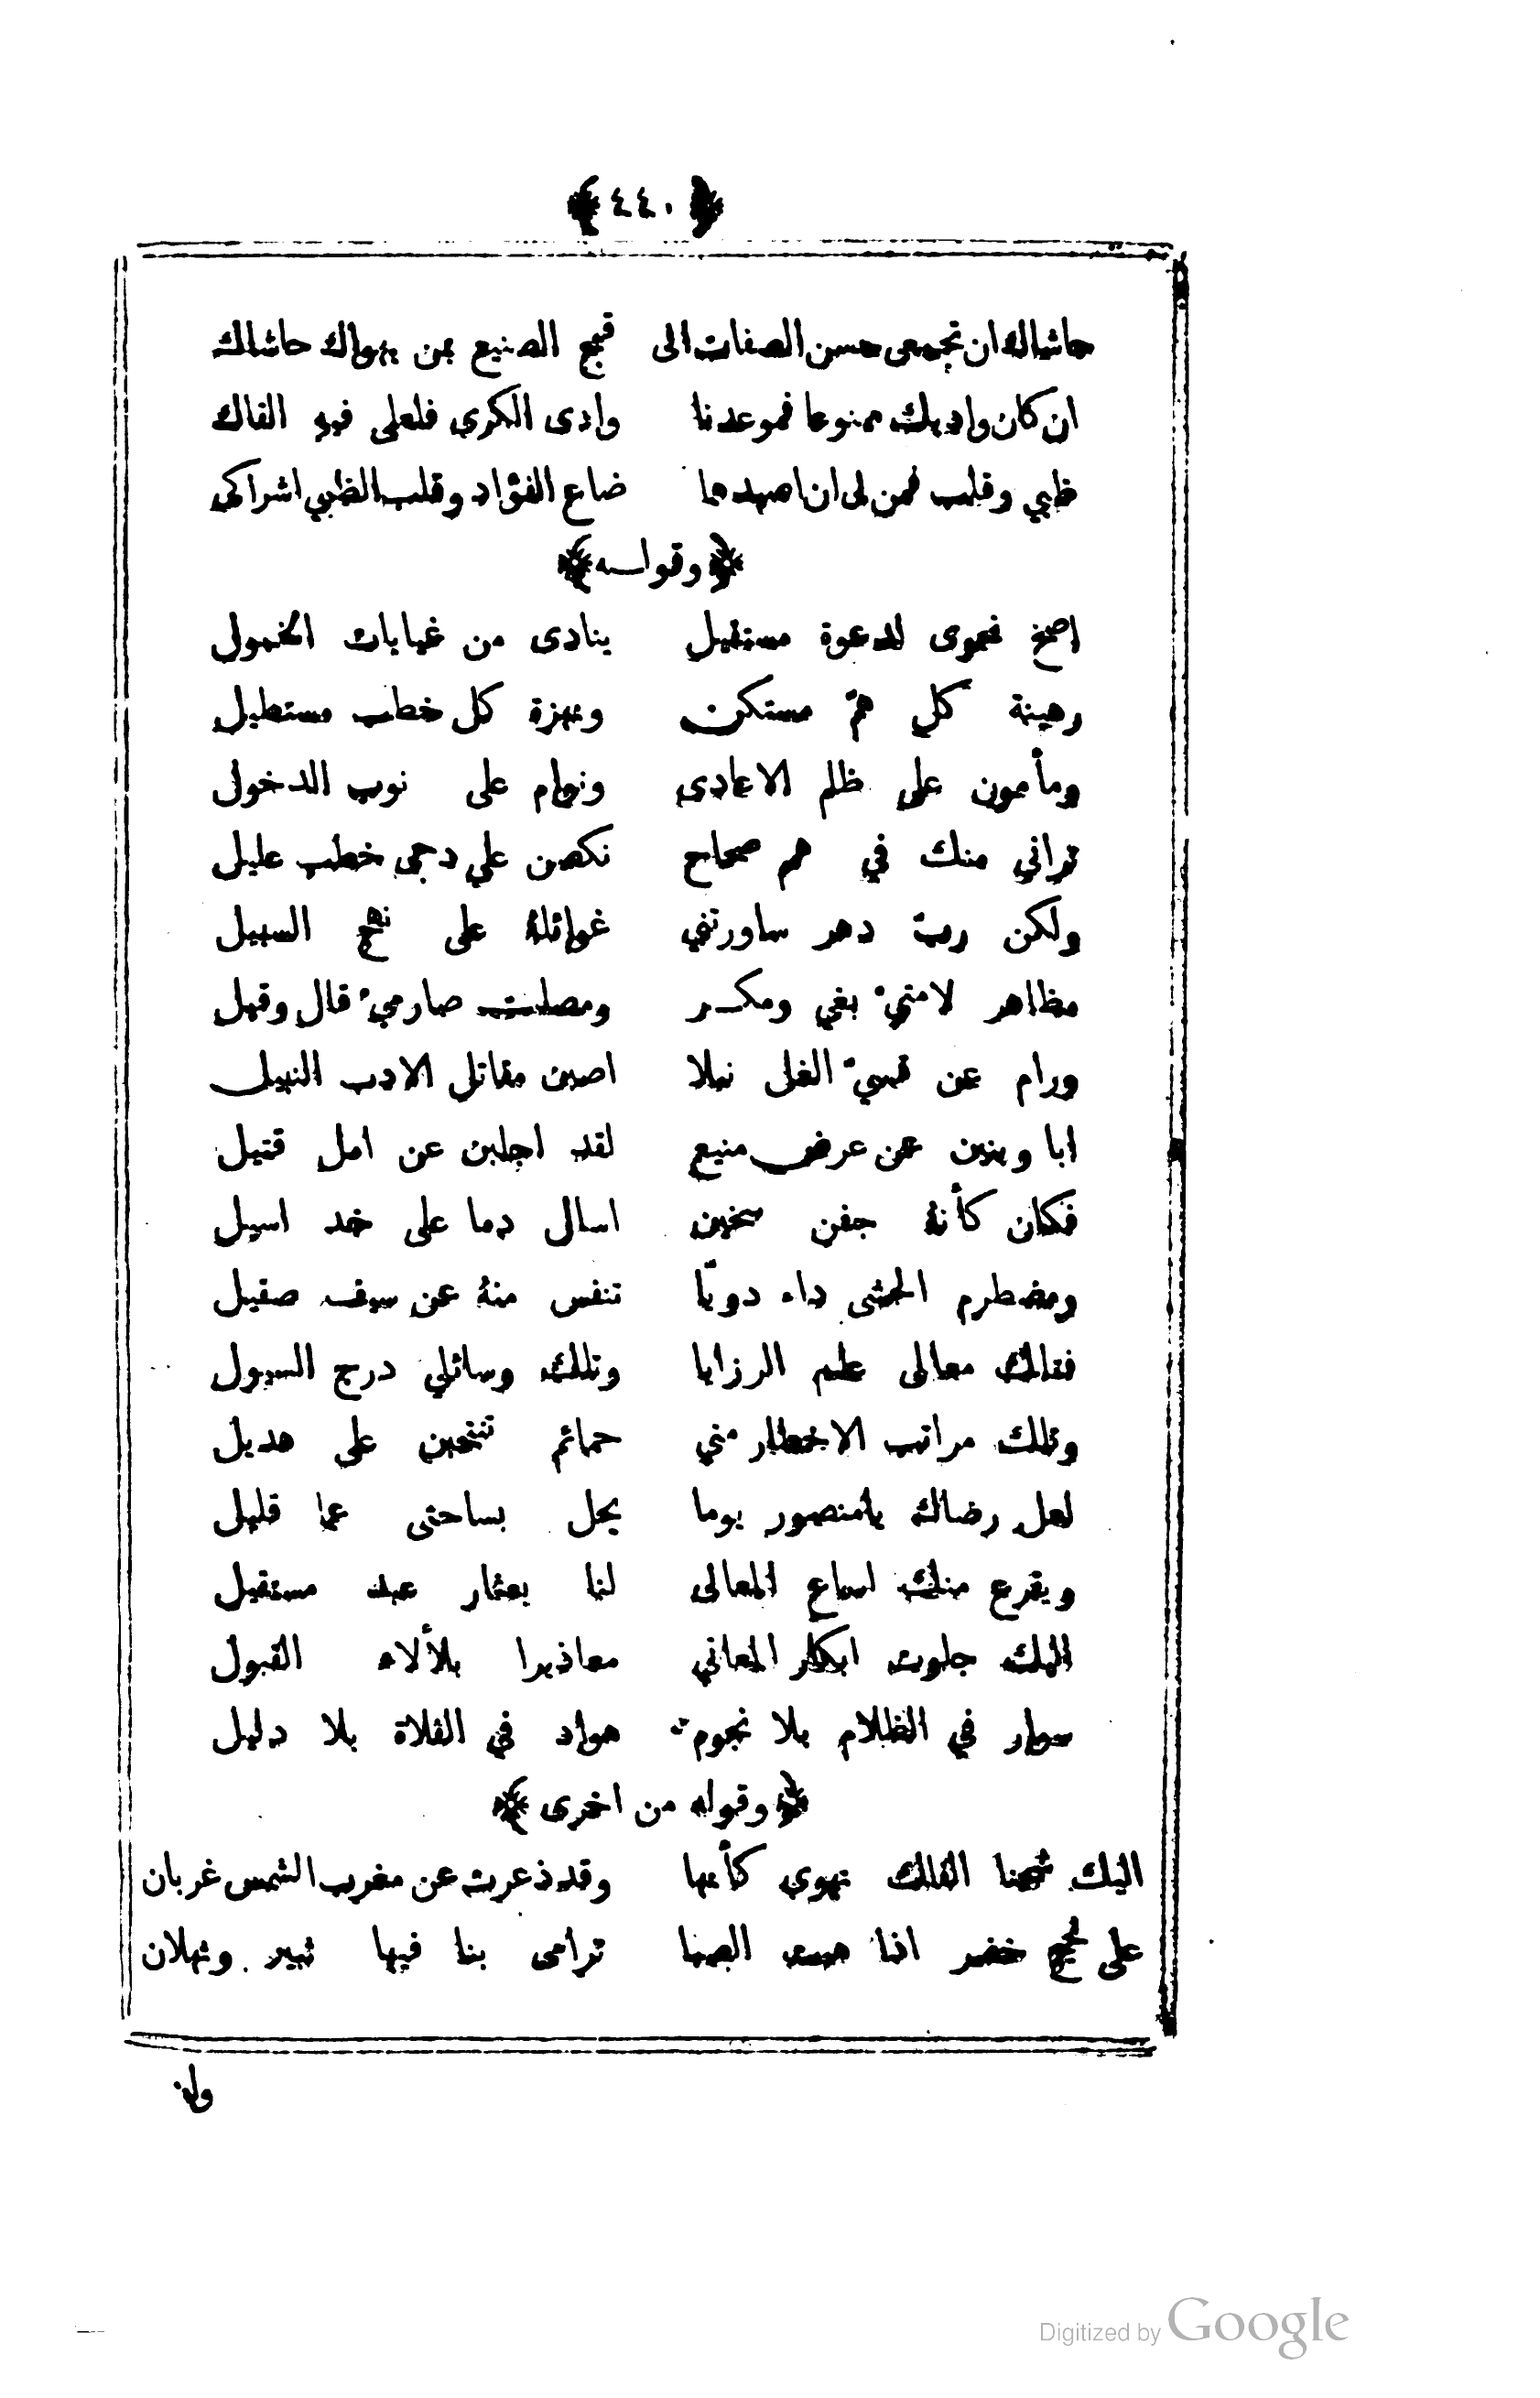 ﴿٤٤٠﴾
حاشاك ان تجمعى حسن الصفات الى قبيح الصنيع بمن يهواك حاشاك
ان كان واديك ممنوعا فموعدنا وادى الكرى فلعلى فيه القاك
ظبي وقلب فمن لى ان اصيدهما ضاع الفؤاد وقلب الظبي اشراكى
﴿وقوله﴾
اصخ نحوى لدعوة مستقيل ينادى من غيابات الخمول
رهينة كل همّ مستكن ونهزة كل خطب مستطيل
ومأمون على ظلم الاعادى ونوام على نوب الدخول
تراني منك في همم صحاح نكصن علي دجى خطب عليل
ولكن ربّ دهر ساورتني غوائله على نهج السبيل
مظاهر لامتيْ بغي ومكر ومصلت صارميْ قال وقيل
ورام عن قسيْ الغل نبلا اصبن مقاتل الادب النبيل
ابا وبنين عن عرض منيع لقد اجلين عن امل قتيل
فكان كأنه جفن سخين اسال دما على خد اسيل
ومضطرم الحشى داء دويّا تنفس منه عن سيف صقيل
فتلك معالى علم الرزايا وتلك وسائلي درج السيول
وتلك مراتب الاخطار مني حمائم تنتحبن على هديل
لعل رضاك يامنصور يوما يحل بساحتى عما قليل
ويقرع منك اسماع المعالى لنا بعثار عبد مستقيل
اليك جلوت ابكار المعاني معاذيرا بلألاء القبول
سوار في الظلام بلا نجوم هواد في الفلاة بلا دليل
﴿وقوله من اخرى﴾
اليك شحنا الفلك تهوى كأنها وقد ذعرت عن مغرب الشمس غربان
على لجج خضر اذا هبت الصبا ترامى بنا فيها ثبير وثهلان
Digitized by Google